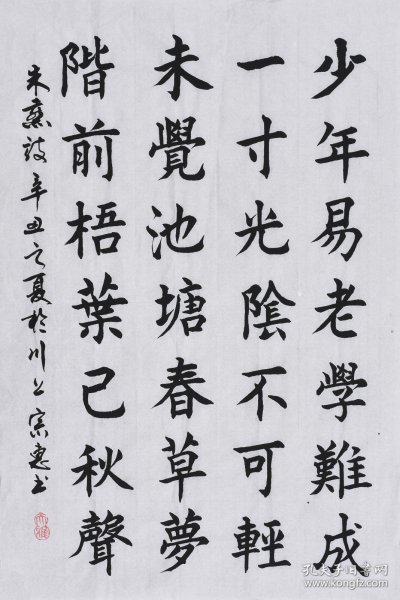 少年易老學難成
一寸光陰不可輕
未覺池塘春草夢
階前梧葉己秋聲
朱熹詩辛丑之夏於川上宗惠书
孔夫子旧书网
www.kongfz.com